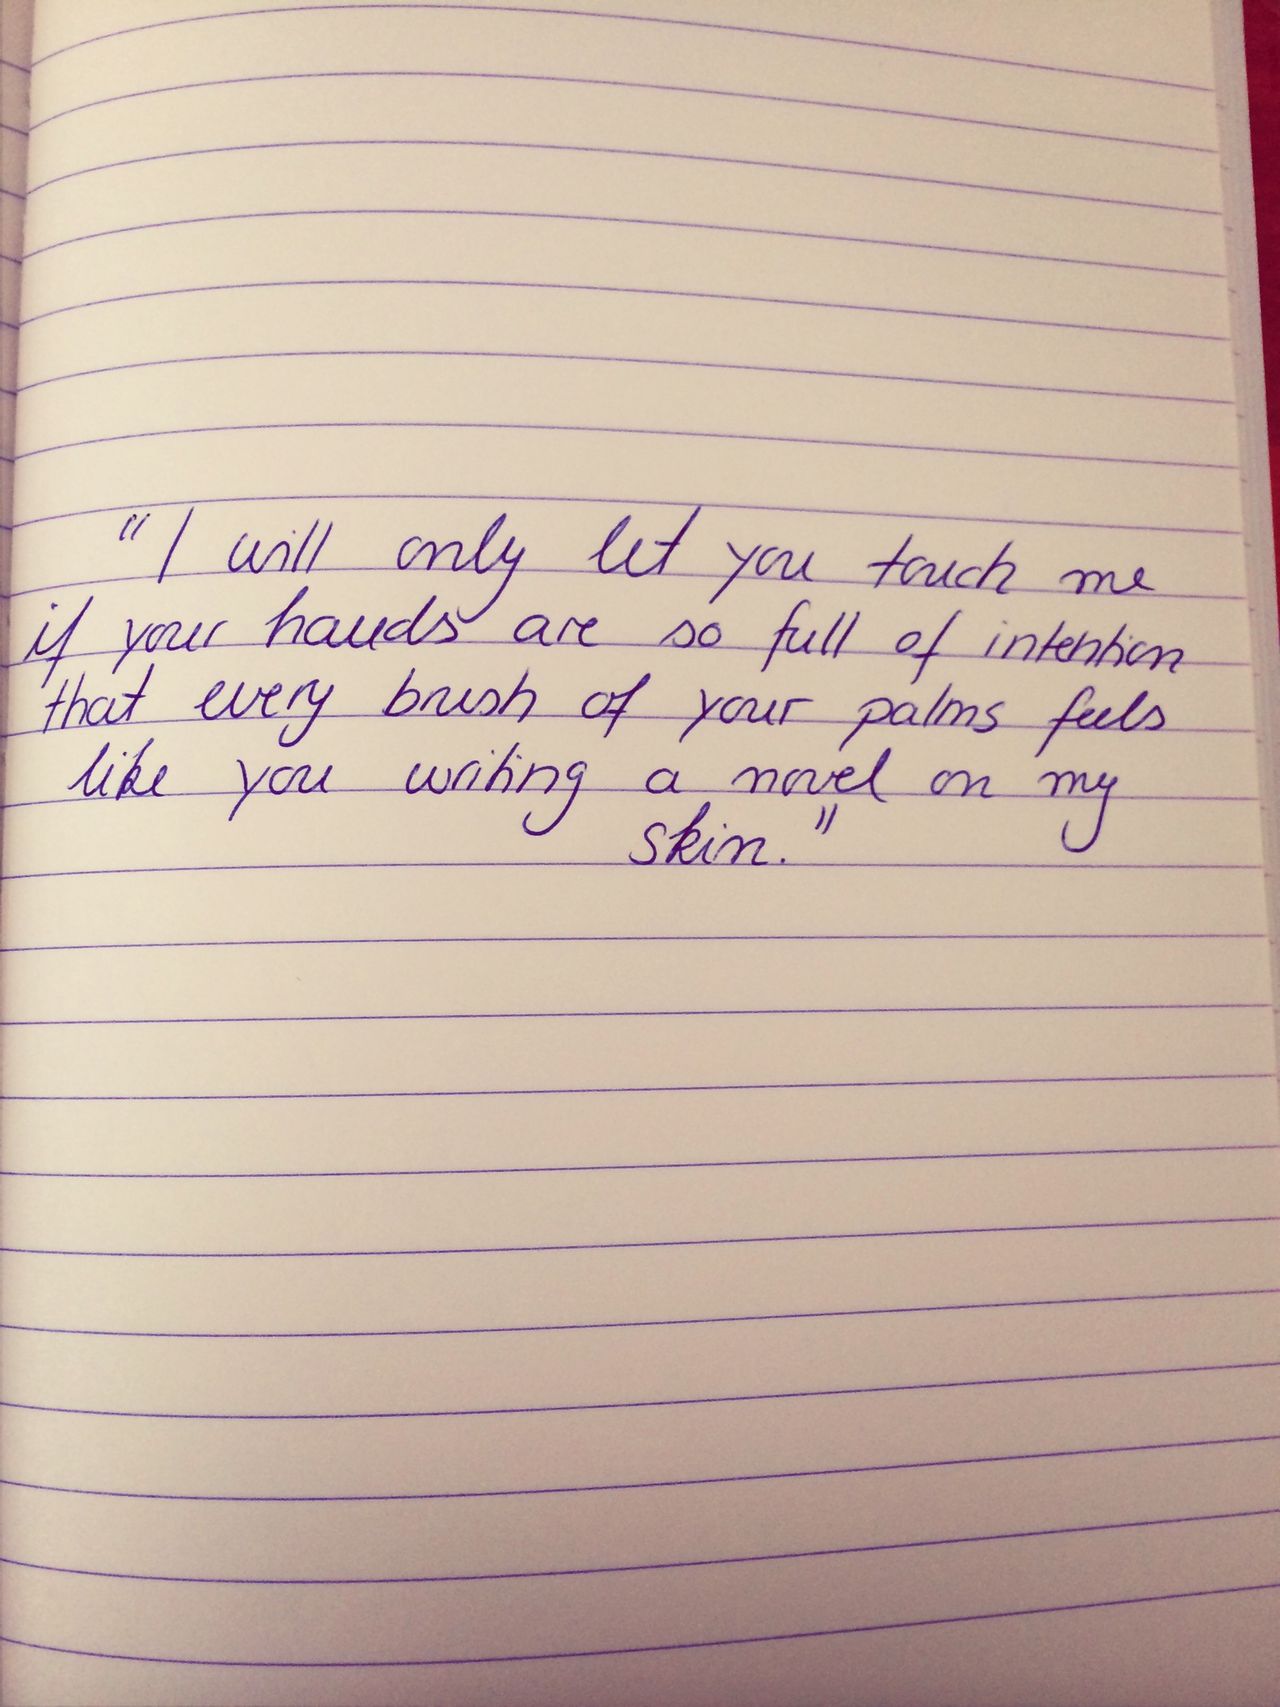 "I will only let you touch me
if your hands are so full of intention
that every brush of your palms feels
like you writing a novel on my
skin."